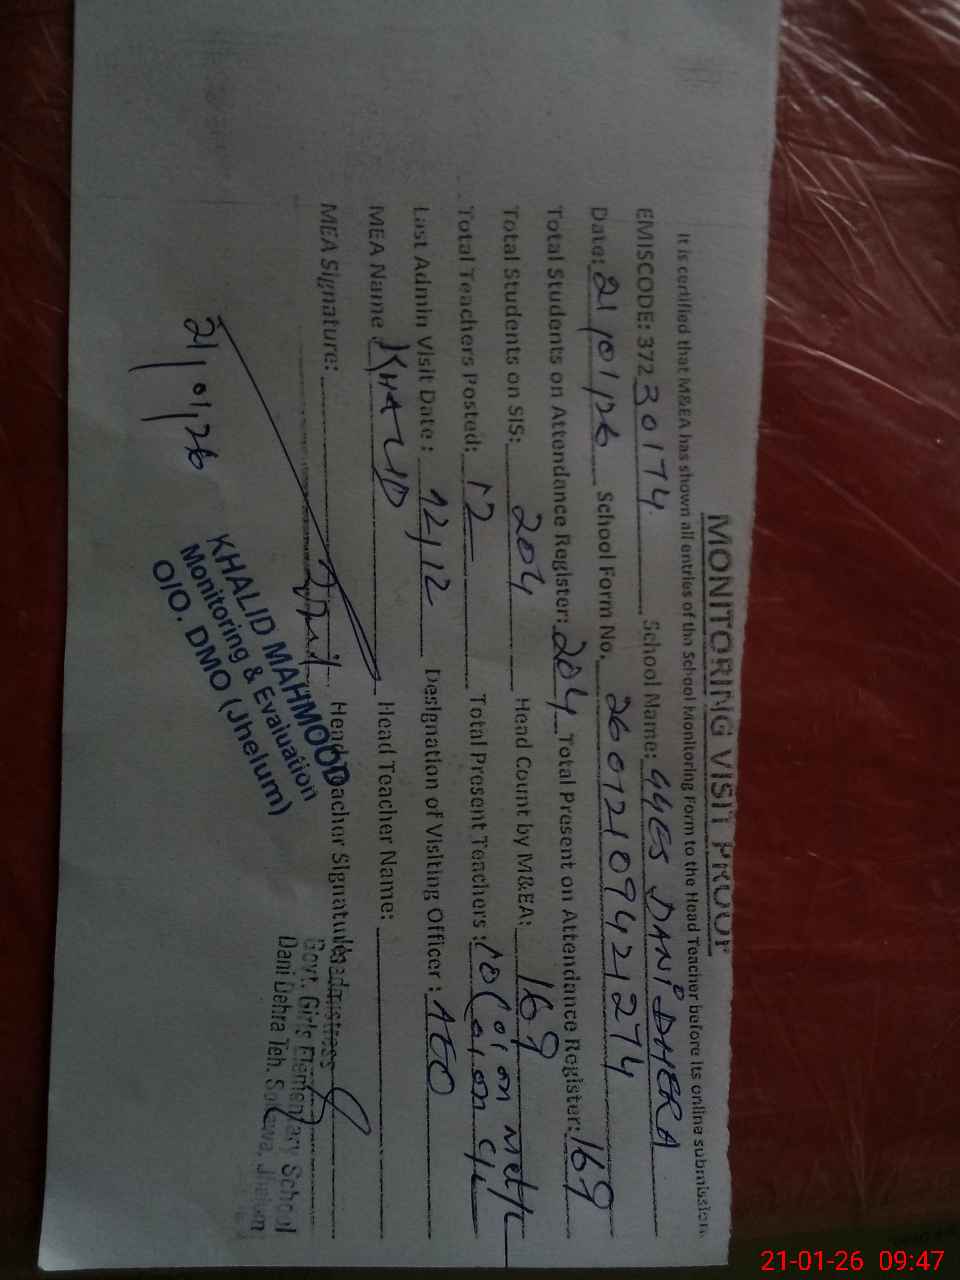 MONITORING VISIT PROOF
It is certified that M&EA has shown all entries of the School Monitoring Form to the Head Teacher before its online submission
EMISCODE: 37230174 School Name: GGES DANI DHERA
Date: 21/01/26 School Form No. 26012109421274
Total Students on Attendance Register: 204 Total Present on Attendance Register: 169
Total Students on SIS: 204 Head Count by M&EA: 169
Total Teachers Posted: 12 Total Present Teachers: 10 (01 on
Last Admin Visit Date: 12/12 Designation of Visiting Officer: AEO
MEA Name: KHALID Head Teacher Name:
MEA Signature: Head Teacher Signature:
21/01/26
KHALID MAHMOOD
Monitoring & Evaluation
O/O. DMO (Jhelum)
Headmistress
Govt. Girls Elementary School
Dani Dehra Teh. Sohawa, Jhelum
21-01-26 09:47